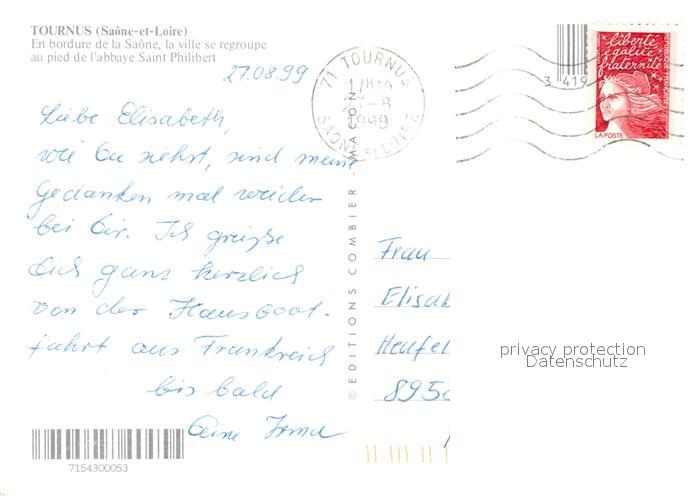 TOURNUS (Saône-et-Loire)
En bordure de la Saône, la ville se regroupe
au pied de l'abbaye Saint Philibert
27.08.99
Liebe Elisabeth,
wie Du siehst, sind meine
Gedanken mal wieder
bei Dir. Ich grüße
Dich ganz herzlich
von der Hausboot-
fahrt aus Frankreich
bis bald
Deine Irma
7154300053
© EDITIONS COMBIER MACON
71 TOURNUS
1999
SAONE ET LOIRE
3 419
liberté
égalité
fraternité
LA POSTE
Frau
Elisab
Heufel
895
privacy protection
Datenschutz